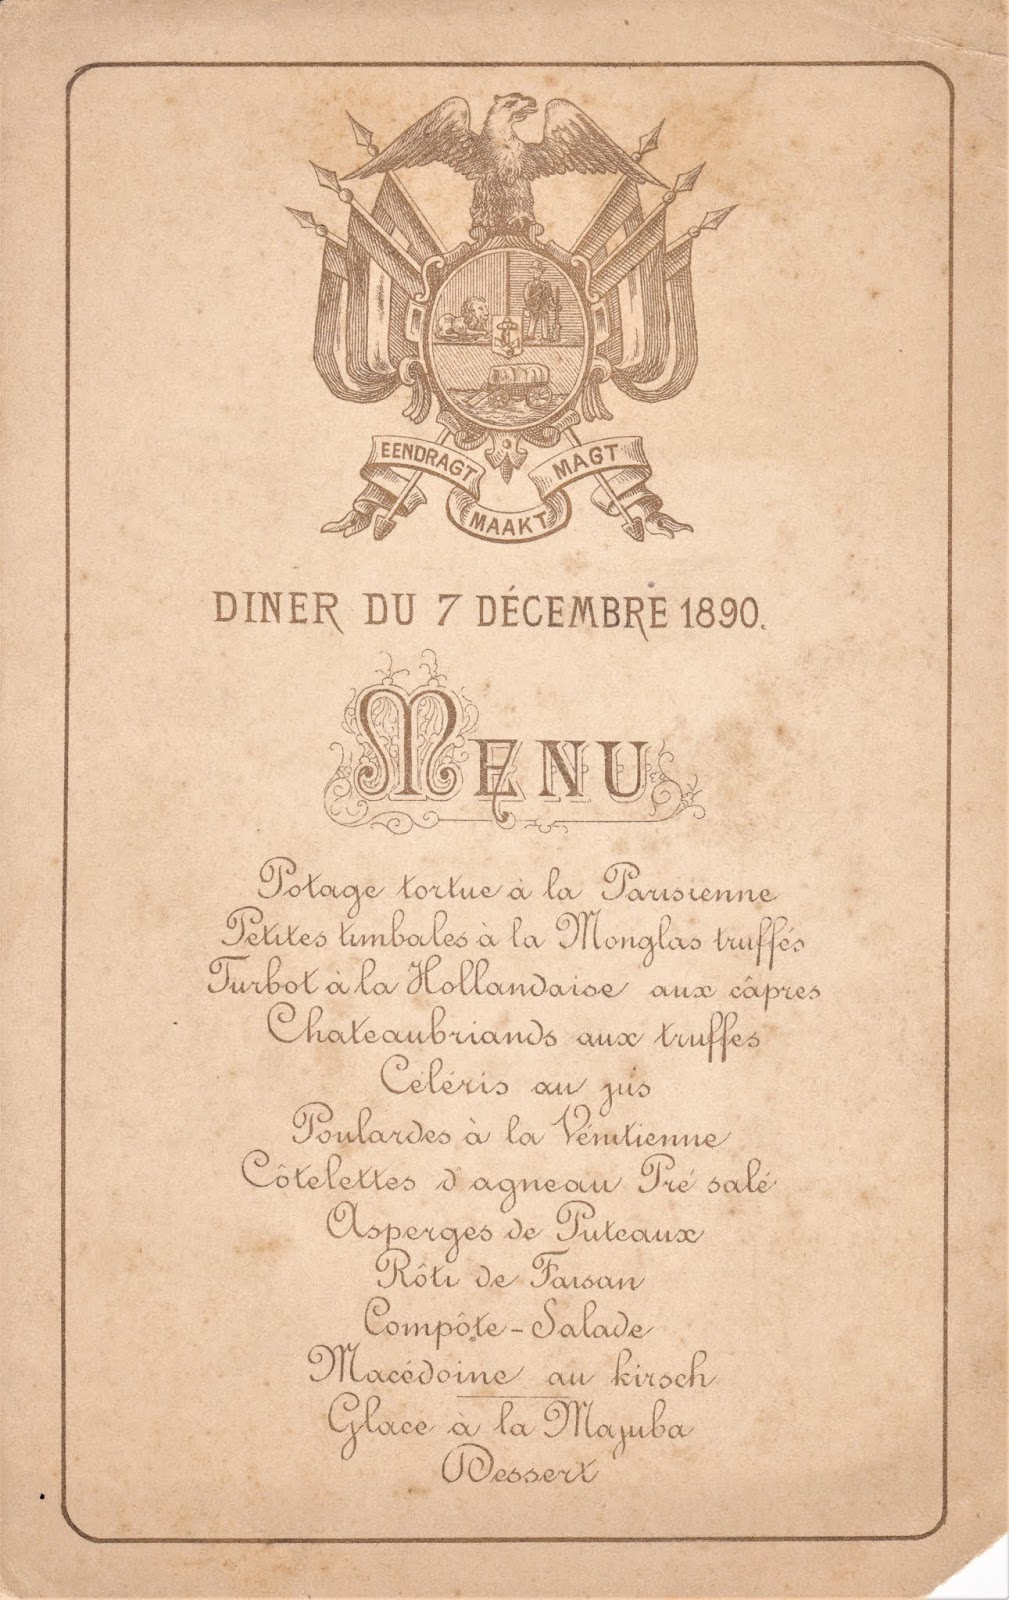 EENDRAGT MAAKT MAGT
DINER DU 7 DÉCEMBRE 1890.
MENU
Potage tortue à la Parisienne
Petites timbales à la Monglas truffés
Turbot à la Hollandaise aux câpres
Chateaubriands aux truffes
Céléris au jus
Poulardes à la Vénitienne
Côtelettes d'agneau Pré salé
Asperges de Puteaux
Rôti de Faisan
Compôte-Salade
Macédoine au kirsch
Glace à la Majuba
Dessert